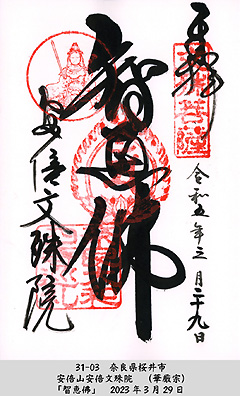 奉拝
令和五年三月二十九日
智恵佛
安倍文殊院
31-03 奈良県桜井市
安倍山安倍文殊院 (華厳宗)
「智恵佛」 2023年3月29日